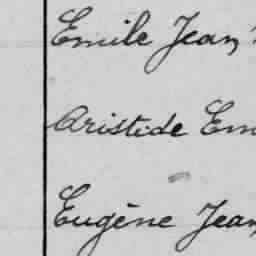 Emile Jean
Aristide Em
Eugène Jean